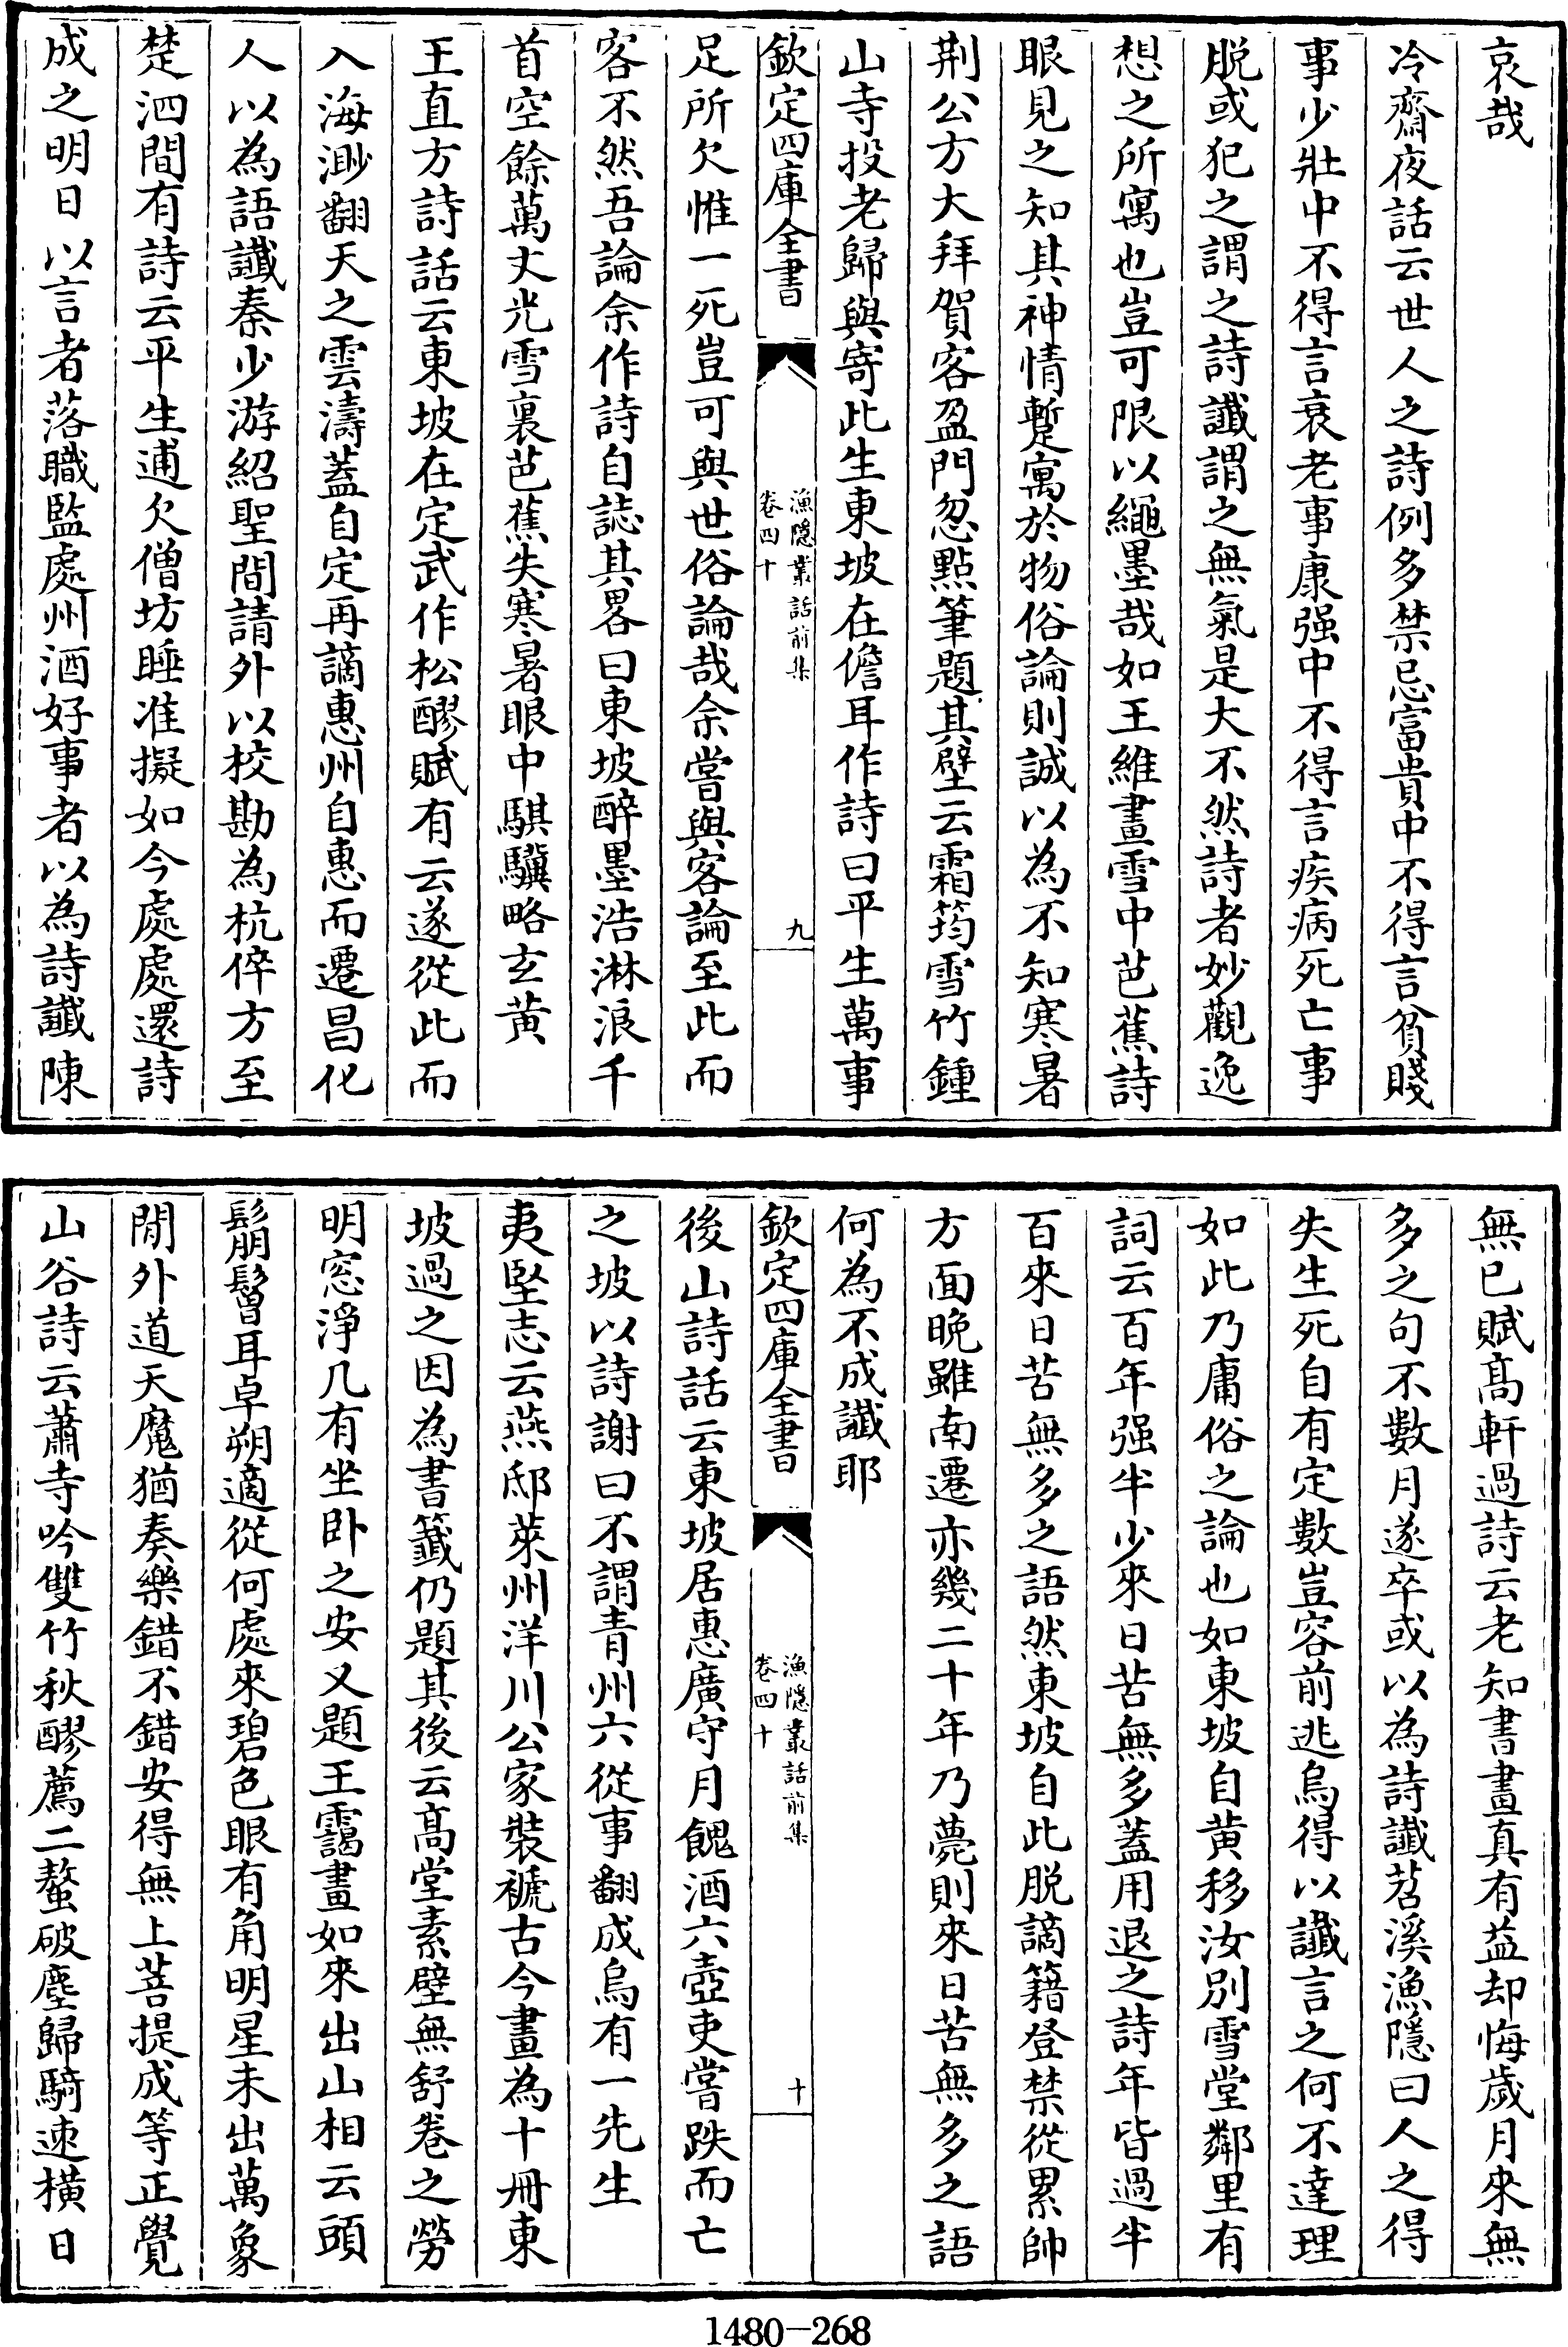 哀哉
冷齋夜話云世人之詩例多禁忌富貴中不得言貧賤
事少壯中不得言衰老事康强中不得言疾病死亡事
脱或犯之謂之詩讖謂之無氣是大不然詩者妙觀逸
想之所寓也豈可限以繩墨哉如王維畫雪中芭蕉詩
眼見之知其神情蹔寓於物俗論則誠以為不知寒暑
荆公方大拜賀客盈門忽點筆題其壁云霜筠雪竹鍾
山寺投老歸與寄此生東坡在儋耳作詩曰平生萬事
欽定四庫全書
漁隱叢話前集
卷四十
九
足所欠惟一死豈可與世俗論哉余嘗與客論至此而
客不然吾論余作詩自誌其畧曰東坡醉墨浩淋浪千
首空餘萬丈光雪裏芭蕉失寒暑眼中騏驥略玄黄
王直方詩話云東坡在定武作松醪賦有云遂從此而
入海渺翻天之雲濤蓋自定再謫惠州自惠而遷昌化
人以為語讖秦少游紹聖間請外以校勘為杭倅方至
楚泗間有詩云平生逋欠僧坊睡准擬如今處處還詩
成之明日以言者落職監處州酒好事者以為詩讖陳
無已賦髙軒過詩云老知書畫真有益却悔歲月來無
多之句不數月遂卒或以為詩讖苕溪漁隱曰人之得
失生死自有定數豈容前逃烏得以讖言之何不達理
如此乃庸俗之論也如東坡自黄移汝别雪堂鄰里有
詞云百年强半少來日苦無多蓋用退之詩年皆過半
百來日苦無多之語然東坡自此脱謫籍登禁從累帥
方面晚雖南遷亦幾二十年乃薨則來日苦無多之語
何為不成讖耶
欽定四庫全書
漁隱叢話前集
卷四十
十
後山詩話云東坡居惠廣守月餽酒六壺吏嘗跌而亡
之坡以詩謝曰不謂青州六從事翻成烏有一先生
夷堅志云燕邸萊州洋川公家裝褫古今畫為十冊東
坡過之因為書籖仍題其後云髙堂素壁無舒卷之勞
明窓淨几有坐卧之安又題王靄畫如來出山相云頭
鬅鬙耳卓朔適從何處來碧色眼有角明星未出萬象
閒外道天魔猶奏樂錯不錯安得無上菩提成等正覺
山谷詩云蕭寺吟雙竹秋醪薦二螯破塵歸騎速橫日
1480—268